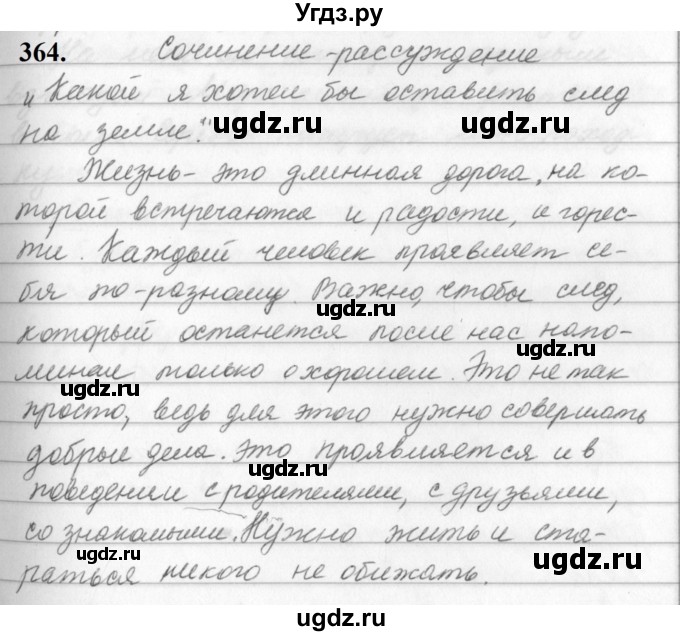 Угдз.ру
364. Сочинение-рассуждение
„Какой я хотел бы оставить след
на земле."
ugdz.ru ugdz.ru
Жизнь - это длинная дорога, на ко-
торой встречаются и радости, и горес-
ugdz.ru
ти. Каждый человек проявляет се-
бя по-разному. Важно, чтобы след,
ugdz.ru
который останется после нас напо-
ugdz.ru
минал только о хорошем. Это не так
просто, ведь для этого нужно совершать
ugdz.ru
добрые дела. Это проявляется и в
ugdz.ru
поведении с родителями, с друзьями,
со знакомыми. Нужно жить и ста-
ugdz.ru ugdz.ru
раться никого не обижать.
ugdz.ru